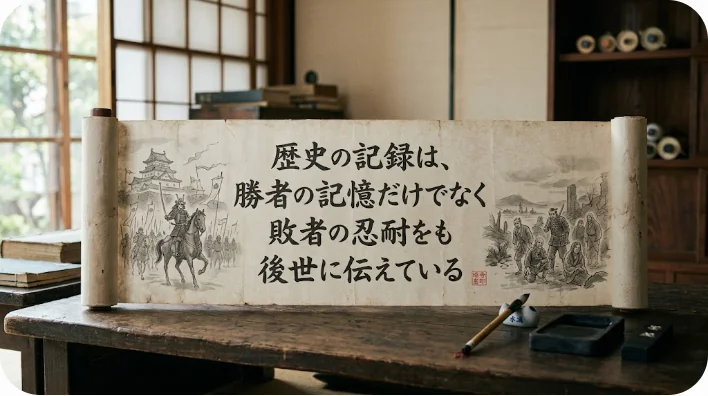 歴史の記録は、
勝者の記憶だけでなく
敗者の忍耐をも
後世に伝えている